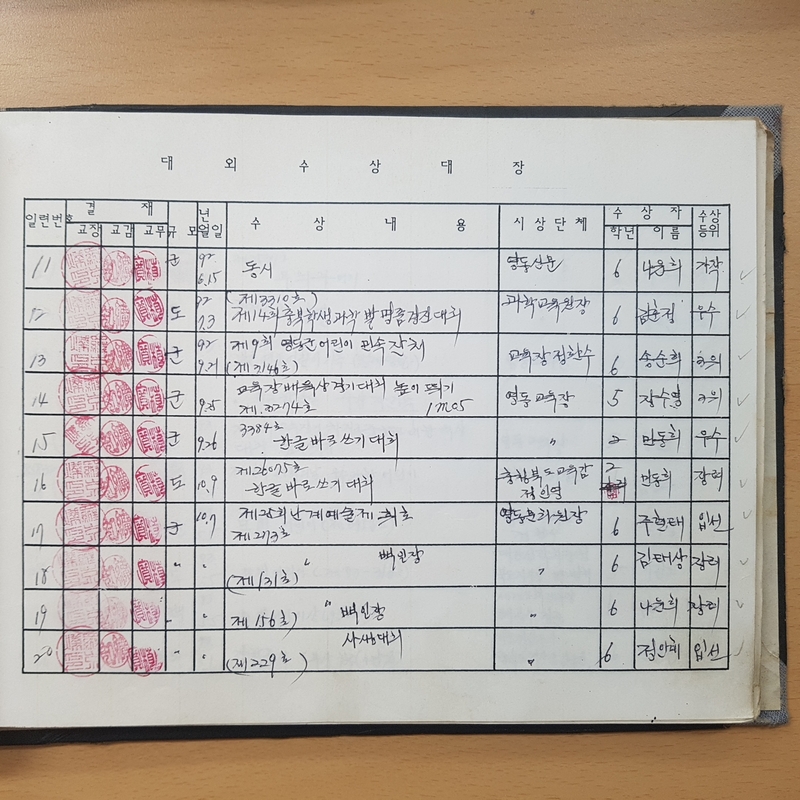 대 외 수 상 대 장
일련번호 결 재 규 모 년 월 일 수 상 내 용 시 상 단 체 수 상 자 수상 등위
교장 교감 교무 학년 이 름
11 군 92 6.15 동시 영동신문 6 나윤희 가작
12 도 92 7.3 (제3310호) 과학교육원장 6 우수
제14회 충북학생과학 발명품경진대회
13 군 92 9.21 제9회 영동군 어린이 민속잔치 교육장 정환수 6 송순희 2위
(제3146호)
14 군 9.25 교육장배 육상경기대회 높이뛰기 영동교육장 5 장수영 2위
1m05
15 군 9.26 3384호 〃 2 민동희 우수
한글 바로쓰기 대회
16 도 10.9 제26075호 충청북도교육감 2 민동희 장려
한글 바로쓰기 대회
17 군 10.7 제25회 난계예술제 영동문화원장 6 주현태 입선
제273호
18 〃 〃 〃 백일장 〃 6 김태상 장려
(제131호)
19 〃 〃 제156호) 〃 백일장 〃 6 나윤희 장려
20 〃 〃 사생대회 〃 6 입선
(제229호)